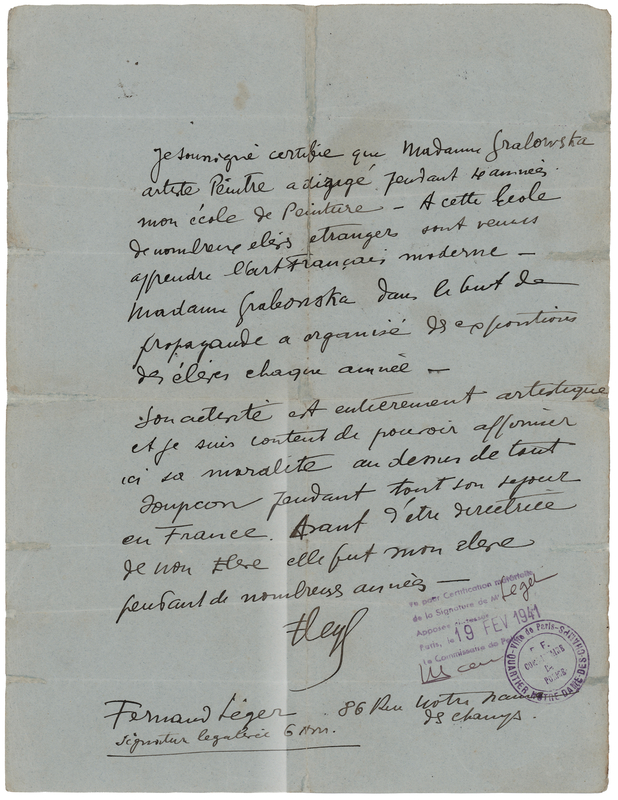 Je soussigné certifie que Madame Grabowska
artiste Peintre a dirigé pendant années
mon école de Peinture — A cette École
de nombreux elèves etrangers sont venus
apprendre l'art Français moderne —
Madame Grabowska dans le but de
propagande a organisé des expositions
des élèves chaque année —
Son activité est entièrement artistique
et je suis content de pouvoir affirmer
ici sa moralité au dessus de tout
soupçon pendant tout son sejour
en France. Avant d'être directrice
de mon elle fut mon elève
pendant de nombreuses années —
FLeger
Vu pour Certification matérielle
de la Signature de Mr Léger
Apposée
Paris, le 19 FEV 1941
Le Commissaire de Police
Ville de Paris
QUARTIER NOTRE-DAME-DES-CHAMPS
Fernand Léger 86 Rue Notre Dame
des Champs.
Signature legalisée